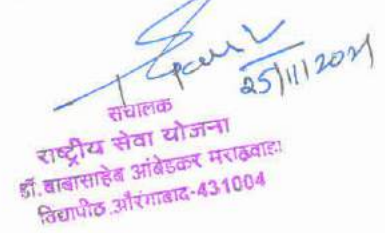 25/11/2021
संचालक
राष्ट्रीय सेवा योजना
डॉ. बाबासाहेब आंबेडकर मराठवाडा
विद्यापीठ, औरंगाबाद-431004